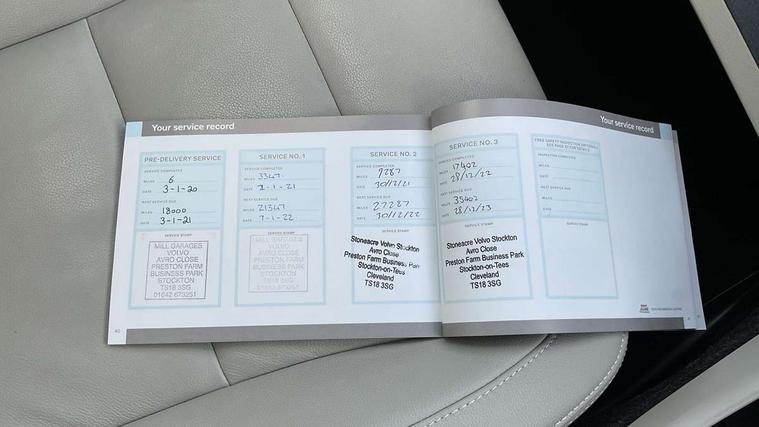 Your service record
Your service record
PRE-DELIVERY SERVICE
SERVICE COMPLETED
MILES 6
DATE 3-1-20
NEXT SERVICE DUE
MILES 18000
DATE 3-1-21
SERVICE STAMP
MILL GARAGES
VOLVO
AVRO CLOSE
PRESTON FARM
BUSINESS PARK
STOCKTON
TS18 3SG
01642 673251
SERVICE NO. 1
SERVICE COMPLETED
MILES 3347
DATE
NEXT SERVICE DUE
MILES 21347
DATE 7-1-22
SERVICE STAMP
MILL GARAGES
VOLVO
AVRO CLOSE
PRESTON FARM
BUSINESS PARK
STOCKTON
TS18 3SG
SERVICE NO. 2
SERVICE COMPLETED
MILES 9287
DATE 30/12/21
NEXT SERVICE DUE
MILES 27287
DATE 30/12/22
SERVICE STAMP
Stoneacre Volvo Stockton
Avro Close
Preston Farm Business Park
Stockton-on-Tees
Cleveland
TS18 3SG
SERVICE NO. 3
SERVICE COMPLETED
MILES 17402
DATE 28/12/22
NEXT SERVICE DUE
MILES 35402
DATE 28/12/23
SERVICE STAMP
Stoneacre Volvo Stockton
Avro Close
Preston Farm Business Park
Stockton-on-Tees
Cleveland
TS18 3SG
INSPECTION COMPLETED
MILES
DATE
NEXT SERVICE DUE
MILES
DATE
SERVICE STAMP
40